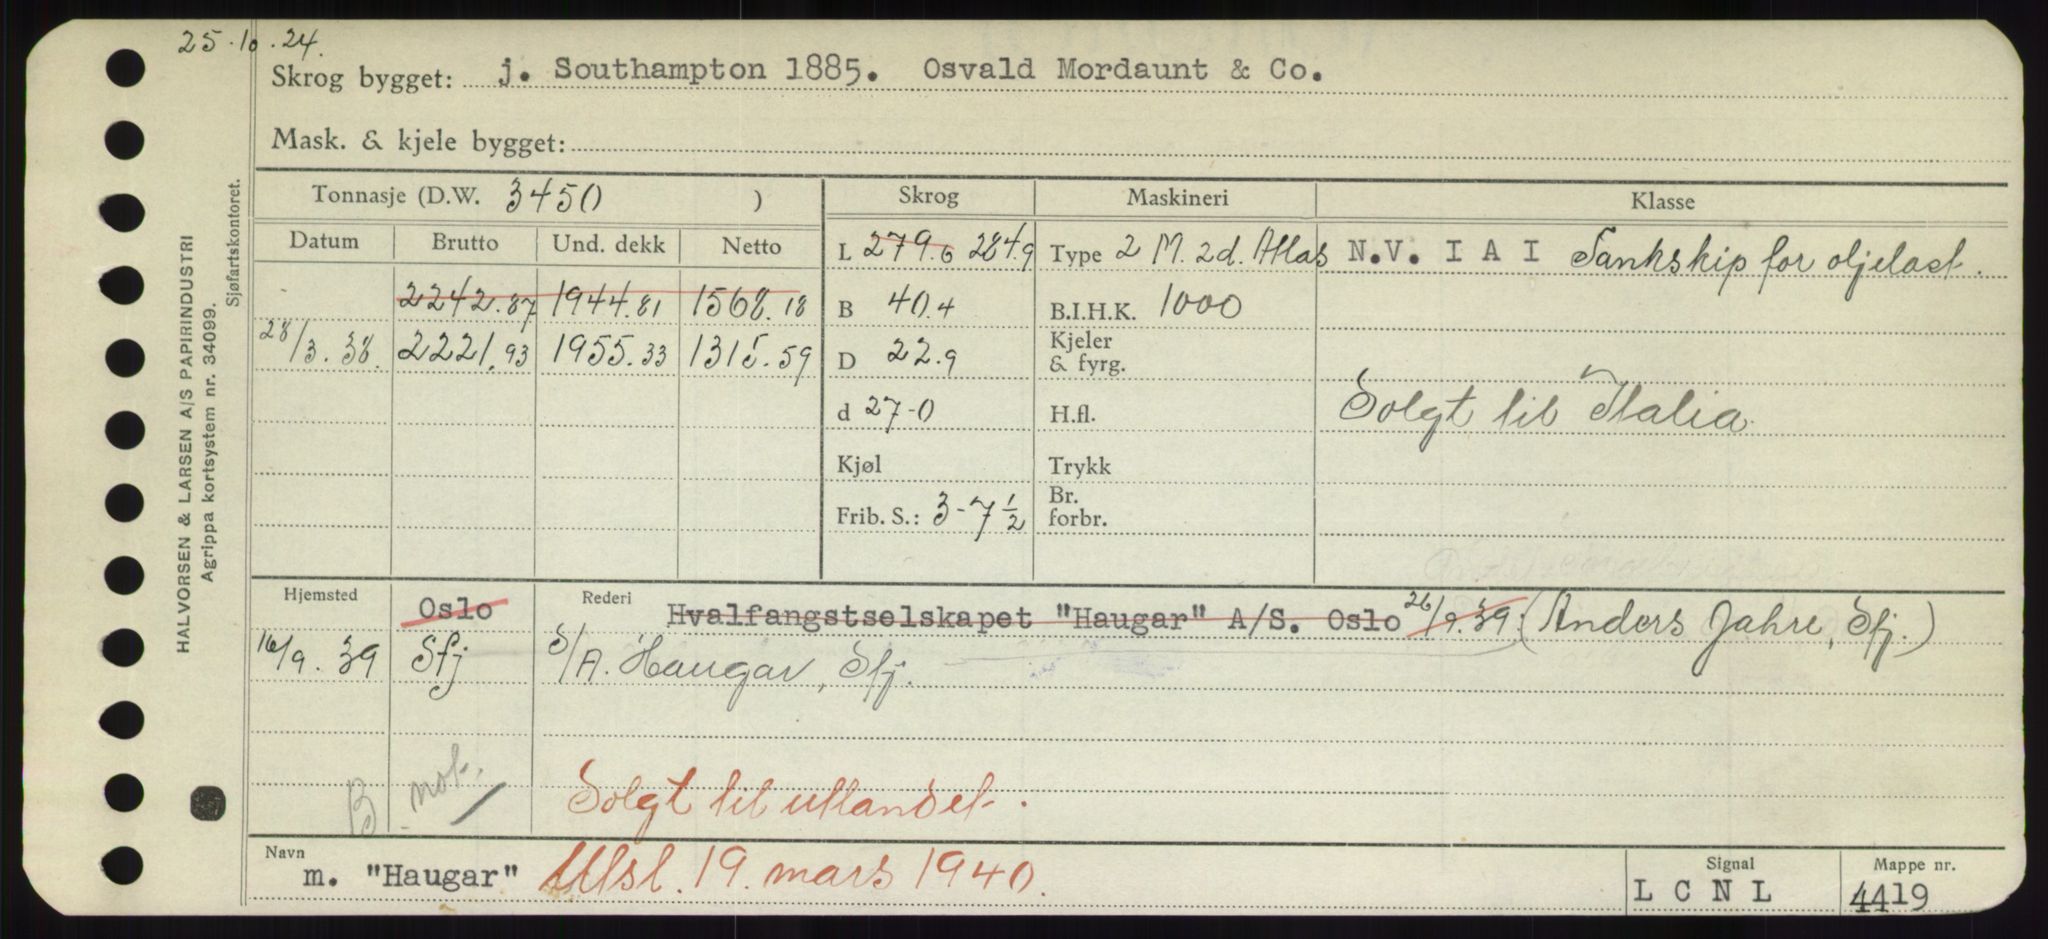 25.10.24.
Skrog bygget: j. Southampton 1885. Osvald Mordaunt & Co.
Mask. & kjele bygget:
Tonnasje (D.W. 3450 ) Skrog Maskineri Klasse
Datum Brutto Und. dekk Netto L 279.6 284.9 Type 2 M. 2d. Atlas N.V. I A I Tankskip for oljelast.
2242.87 1944.81 1568.18 B 40.4 B.I.H.K. 1000
28/3.38. 2221.93 1955.33 1315.59 D 22.9 Kjeler & fyrg.
d 27-0 H.fl. Solgt til Italia
Kjøl Trykk
Frib. S.: 3-7 1/2 Br. forbr.
Hjemsted Oslo Rederi Hvalfangstselskapet "Haugar" A/S. Oslo 26/9.39. (Anders Jahre, Sfj.)
16/9.39 Sfj S/A. Haugar, Sfj.
B not.
Solgt til utlandet.
Navn m. "Haugar" Utsl. 19. mars 1940. Signal L C N L Mappe nr. 4419
HALVORSEN & LARSEN A/S PAPIRINDUSTRI
Agrippa kortsystem nr. 34099.
Sjøfartskontoret.